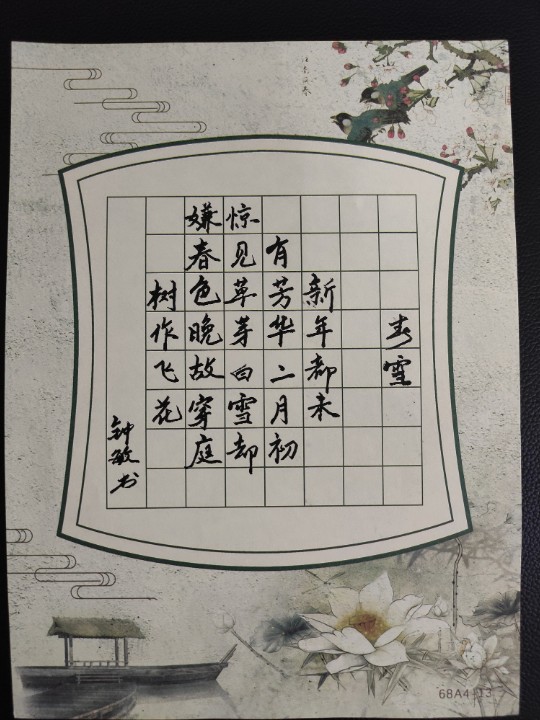 春雪
新年都未
有芳华二月初
惊见草芽白雪却
嫌春色晚故穿庭
树作飞花
钟敏书
68A4-13